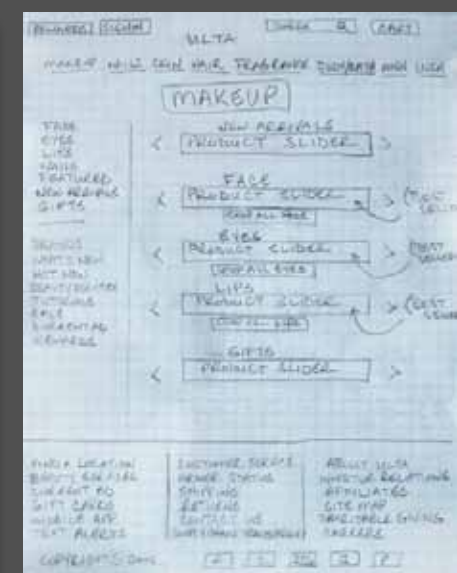 REWARDS SIGN IN SEARCH CART
ULTA
MAKEUP NAILS SKIN HAIR FRAGRANCE BATH MEN ULTA
MAKEUP
FACE
EYES
LIPS
NAILS
FEATURED
NEW ARRIVALS
GIFTS
BRANDS
WHAT'S NEW
HOT NOW
TUTORIALS
SALE
REWARDS
NEW ARRIVALS
< PRODUCT SLIDER >
FACE
< PRODUCT SLIDER > (BEST SELLERS
SHOP ALL FACE
EYES
< PRODUCT SLIDER > (BEST SELLERS
SHOP ALL EYES
LIPS
< PRODUCT SLIDER > (BEST SELLERS
SHOP ALL LIPS
GIFTS
< PRODUCT SLIDER >
FIND A LOCATION
BEAUTY SERVICES
CURRENT AD
GIFT CARDS
MOBILE APP
TEXT ALERTS
CUSTOMER SERVICE
ORDER STATUS
SHIPPING
RETURNS
CONTACT US
ABOUT ULTA
INVESTOR RELATIONS
AFFILIATES
SITE MAP
CHARITABLE GIVING
CAREERS
COPYRIGHT